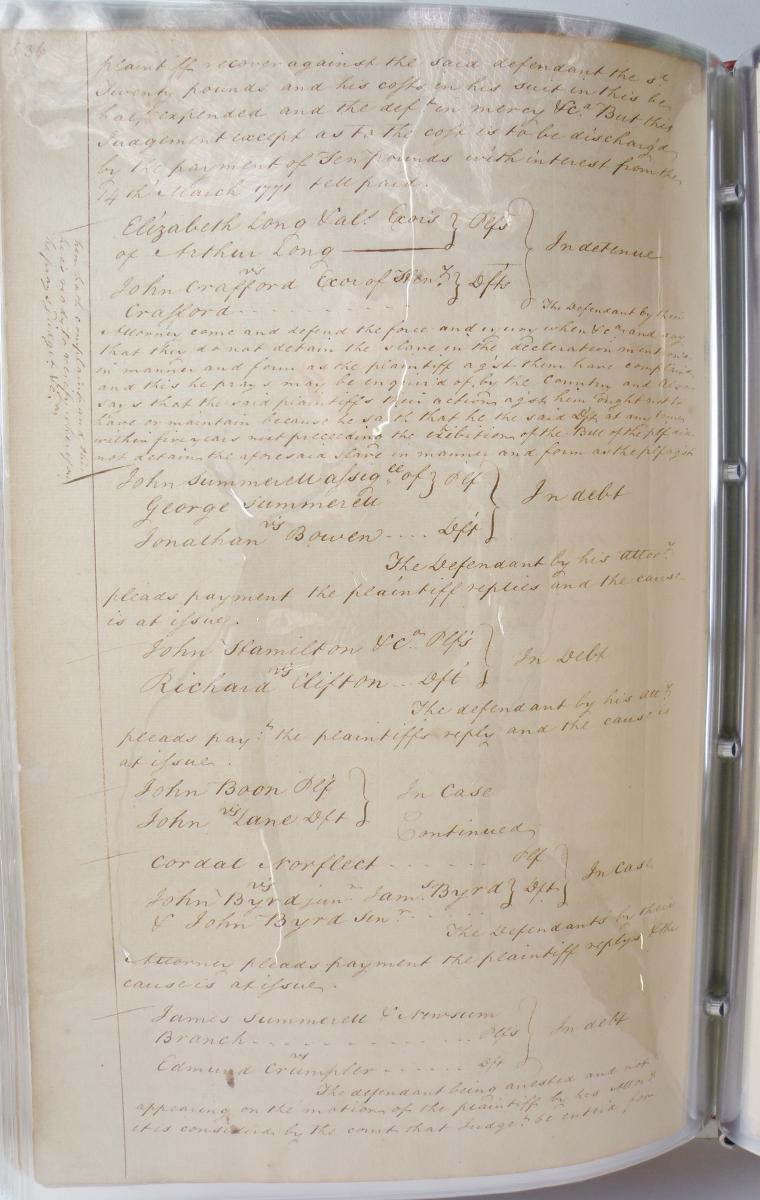 plaintiff recover against the said defendant the sd
Twenty pounds and his costs in his suit in this be
half expended and the deft in mercy &ca But this
Judgement except as to the cost is to be dischargd
by the payment of Ten pounds with interest from the
14th March 1771 till paid.
Elizabeth Long & als Exors } Plfs
of Arthur Long
In detinue
vs
John Crafford Exor of Henry } Dfts
Crafford
The Defendant by their
Attorney come and defend the force and injury when &ca and say
that they do not detain the slave in the decleration mentiond
in manner and form as the plaintiff agst them have complaind
and this he prays may be enquird of by the Country and also
says that the said plaintiff's their action agst him ought not to
have or maintain because he saith that he the said Dft at any time
within five years next preceeding the exibition of the Bill of the plf did
not detain the aforesaid slave in manner and form as the plf agst
him hath complaind and this
he is ready to verify
he prays Judgt &ca
John Summerell assigee of } Plf
George Summerell
In debt
vs
Jonathan Bowen Dft
The Defendant by his attory
pleads payment the plaintiff replies and the cause
is at issue.
John Hamilton &ca Plfs
In Debt
vs
Richard Clifton Dft
The defendant by his atty
pleads payt the plaintiffs reply and the cause is
at issue.
John Boon Plf
In Case
vs
John Lane Dft
Continued
Cordal Norfleet Plf
In Case
vs
John Byrd junr Jams Byrd } Dft
& John Byrd Senr
The Defendants by their
Attorney pleads payment the plaintiff replys & the
cause is at issue.
James Summerell & Newsum
Branch Plfs
In debt
vs
Edmund Crumpler Dft
The defendant being arrested and not
appearing on the motion of the plaintiff by his Attory
it is considerd by the court that Judgt be enterd for